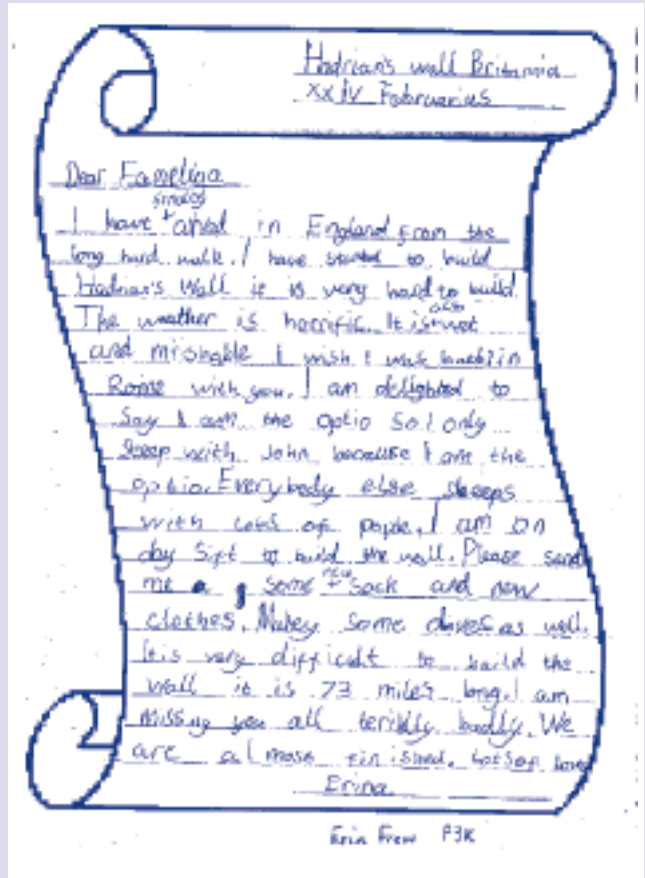 Hadrian's wall Britannia
XXIV Februarius
Dear Famelina
I have arived in England from the
long hard walk. I have started to build
Hadrian's Wall it is very hard to build.
The weather is horrific. It is wet
and mishable I wish I was back in
Rome with you. I am delighted to
Say I am the optio So I only
Sleep with John because I am the
optio. Everybody else sleeps
with lots of people. I am on
day Sift to build the wall. Please send
me some new sock and new
clothes. Mabey Some gloves as well.
It is very difficult to build the
wall it is 73 miles long. I am
missing you all teribly badly. We
are almose finished. lots of love
Erina
Erin Frew P3K